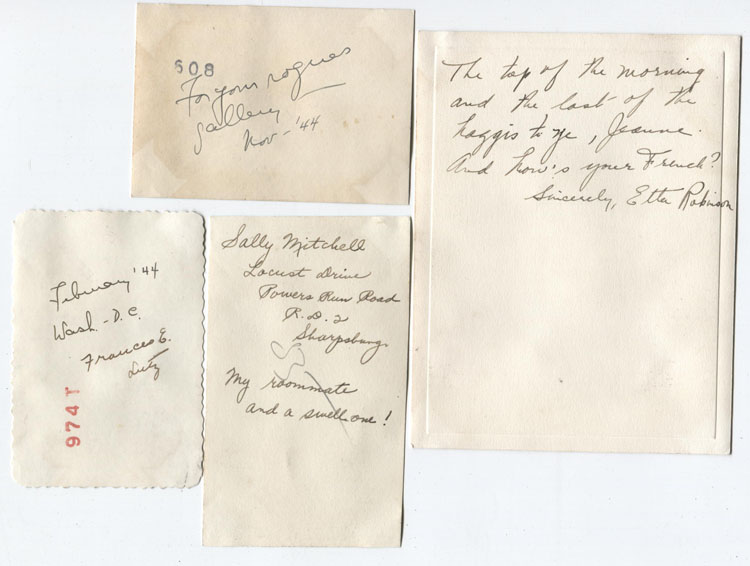 608
For your rogues
gallery
Nov - '44
The top of the morning
and the last of the
haggis to ye, Jeanne.
And how's your French?
Sincerely, Etta Robinson
February '44
Wash. - D.C.
Frances E.
Lutz
974T
Sally Mitchell
Locust Drive
Powers Run Road
R.D. 2
Sharpsburg
My roommate
and a swell one!